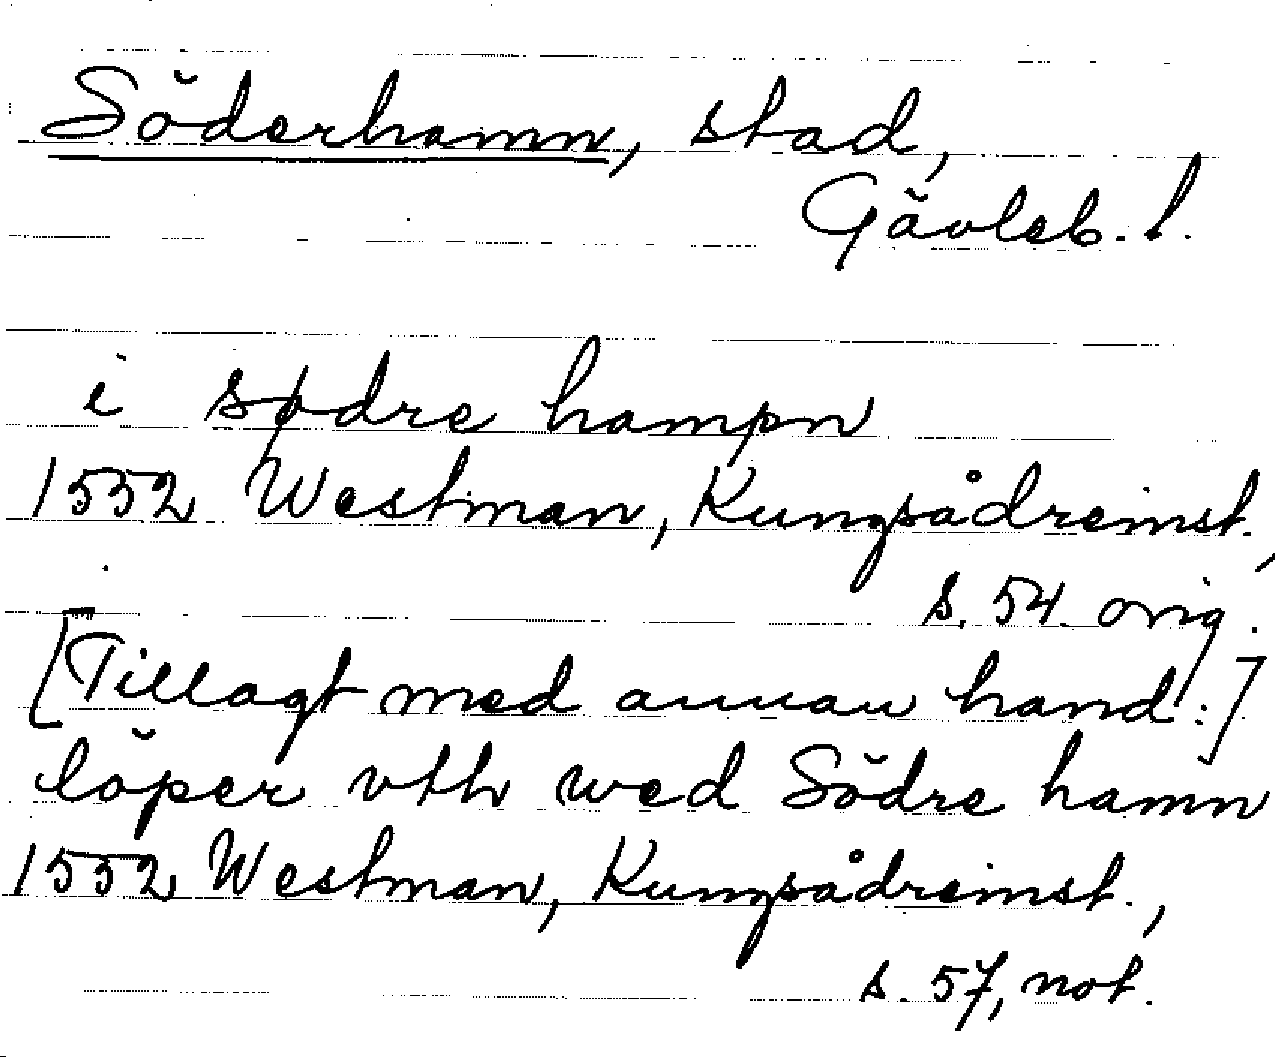 Söderhamn, stad,
Gävleb. l.
i sødre hampn
1552 Westman, Kungsådreinst.,
s. 54. orig.
[Tillagt med annan hand:]
löper vth wed Södre hamn
1552 Westman, Kungsådreinst.,
s. 57, not.